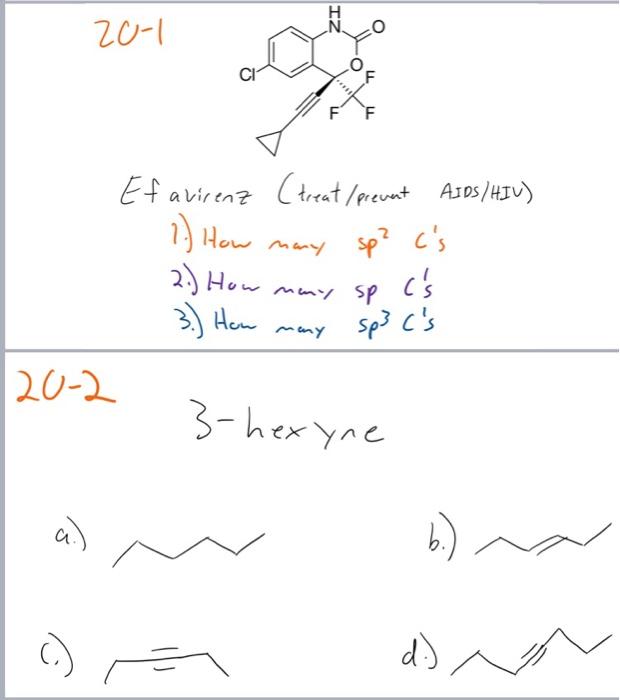 20-1
H
N
O
O
Cl
F
F
F
Efavirenz (treat/prevent AIDS/HIV)
1.) How many sp² C's
2.) How many sp C's
3.) How many sp³ C's
20-2
3-hexyne
a.)
b.)
c.)
d.)